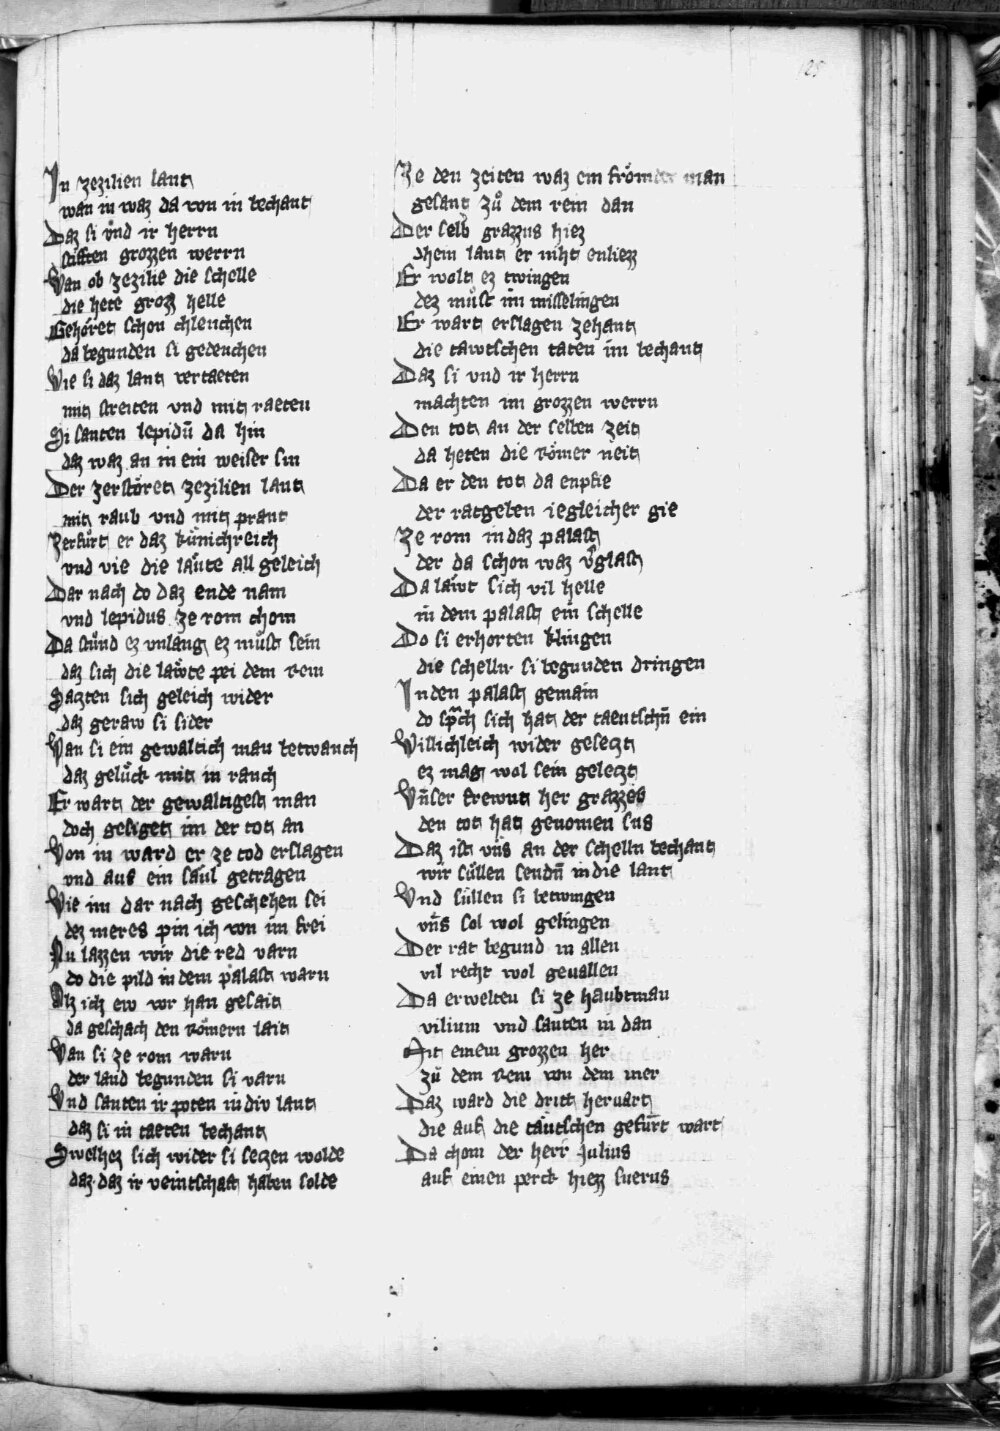 125
In zezilien lant
wan in waz da von in bechant
Daz si vnd ir herrn
stifften grozzen werrn
Wan ob zezilie die schelle
die hete groz helle
Gehöret schon chlenchen
da begunden si gedenchen
Wie si daz lant vertaeten
mit streiten vnd mit raeten
Si santen lepidū da hin
daz waz an in ein weiser sin
Der zerstöret zezilien lant
mit raub vnd mit prant
Zerfůrt er daz kůnichreich
vnd vie die läute all geleich
Dar nach do daz ende nam
vnd lepidus ze rom chom
Da stůnd ez vnlang ez můst sein
daz sich die läwte pei dem Rein
Saczten sich geleich wider
daz geraw si sider
Wan si ein gewaltich man betwanch
daz gelůck mit in ranch
Er wart der gewaltigest man
doch gesiget im der tot an
Von in ward er ze tod erslagen
vnd auf ein säul getragen
Wie im dar nach geschehen sei
dez meres pin ich von im frei
Nu lazzen wir die red varn
do die pild in dem palast warn
Alz ich ew vor han gesait
da geschach den Römern lait
Wan si ze rom warn
der land begunden si varn
Vnd santen ir poten in div lant
daz si in taeten bechant
Swelhez sich wider si seczen wolde
daz daz ir veintschaft haben solde
Ze den zeiten waz ein frömder man
gesant zů dem rein dan
Der selb grazzus hiez
dhein lant er niht enliezz
Er wolt ez twingen
dez můst im misselingen
Er wart erslagen zehant
die tawtschen taten im bechant
Daz si vnd ir herrn
machten im grozzen werrn
Den tot an der selben zeit
da heten die Römer neit
Da er den tot da enpfie
der ratgeben iegleicher gie
Ze rom in daz palast
der da schon waz v̄glast
Da läwt sich vil helle
in dem palast ein schelle
Do si erhorten klingen
die schelln si begunden dringen
In den palast gemain
do sp̄ch sich hat der taeutschn̄ ein
Willichleich wider geseczt
ez mag wol sein geleczt
Vn̄ser frewnt her grazzes
den tot hat genomen sus
Daz ist vn̄s an der schelln bechant
wir süllen sendn̄ in die lant
Vnd süllen si betwingen
vn̄s sol wol gelingen
Der rat begund in allen
vil recht wol geuallen
Da erwelten si ze haubtman
vilium vnd santen in dan
Mit einem grozzen her
zů dem Rein von dem mer
Daz ward die dritt heruart
die auf die täutschen gefůrt wart
Da chom der herr Julius
auf einen perck hiezz suerus